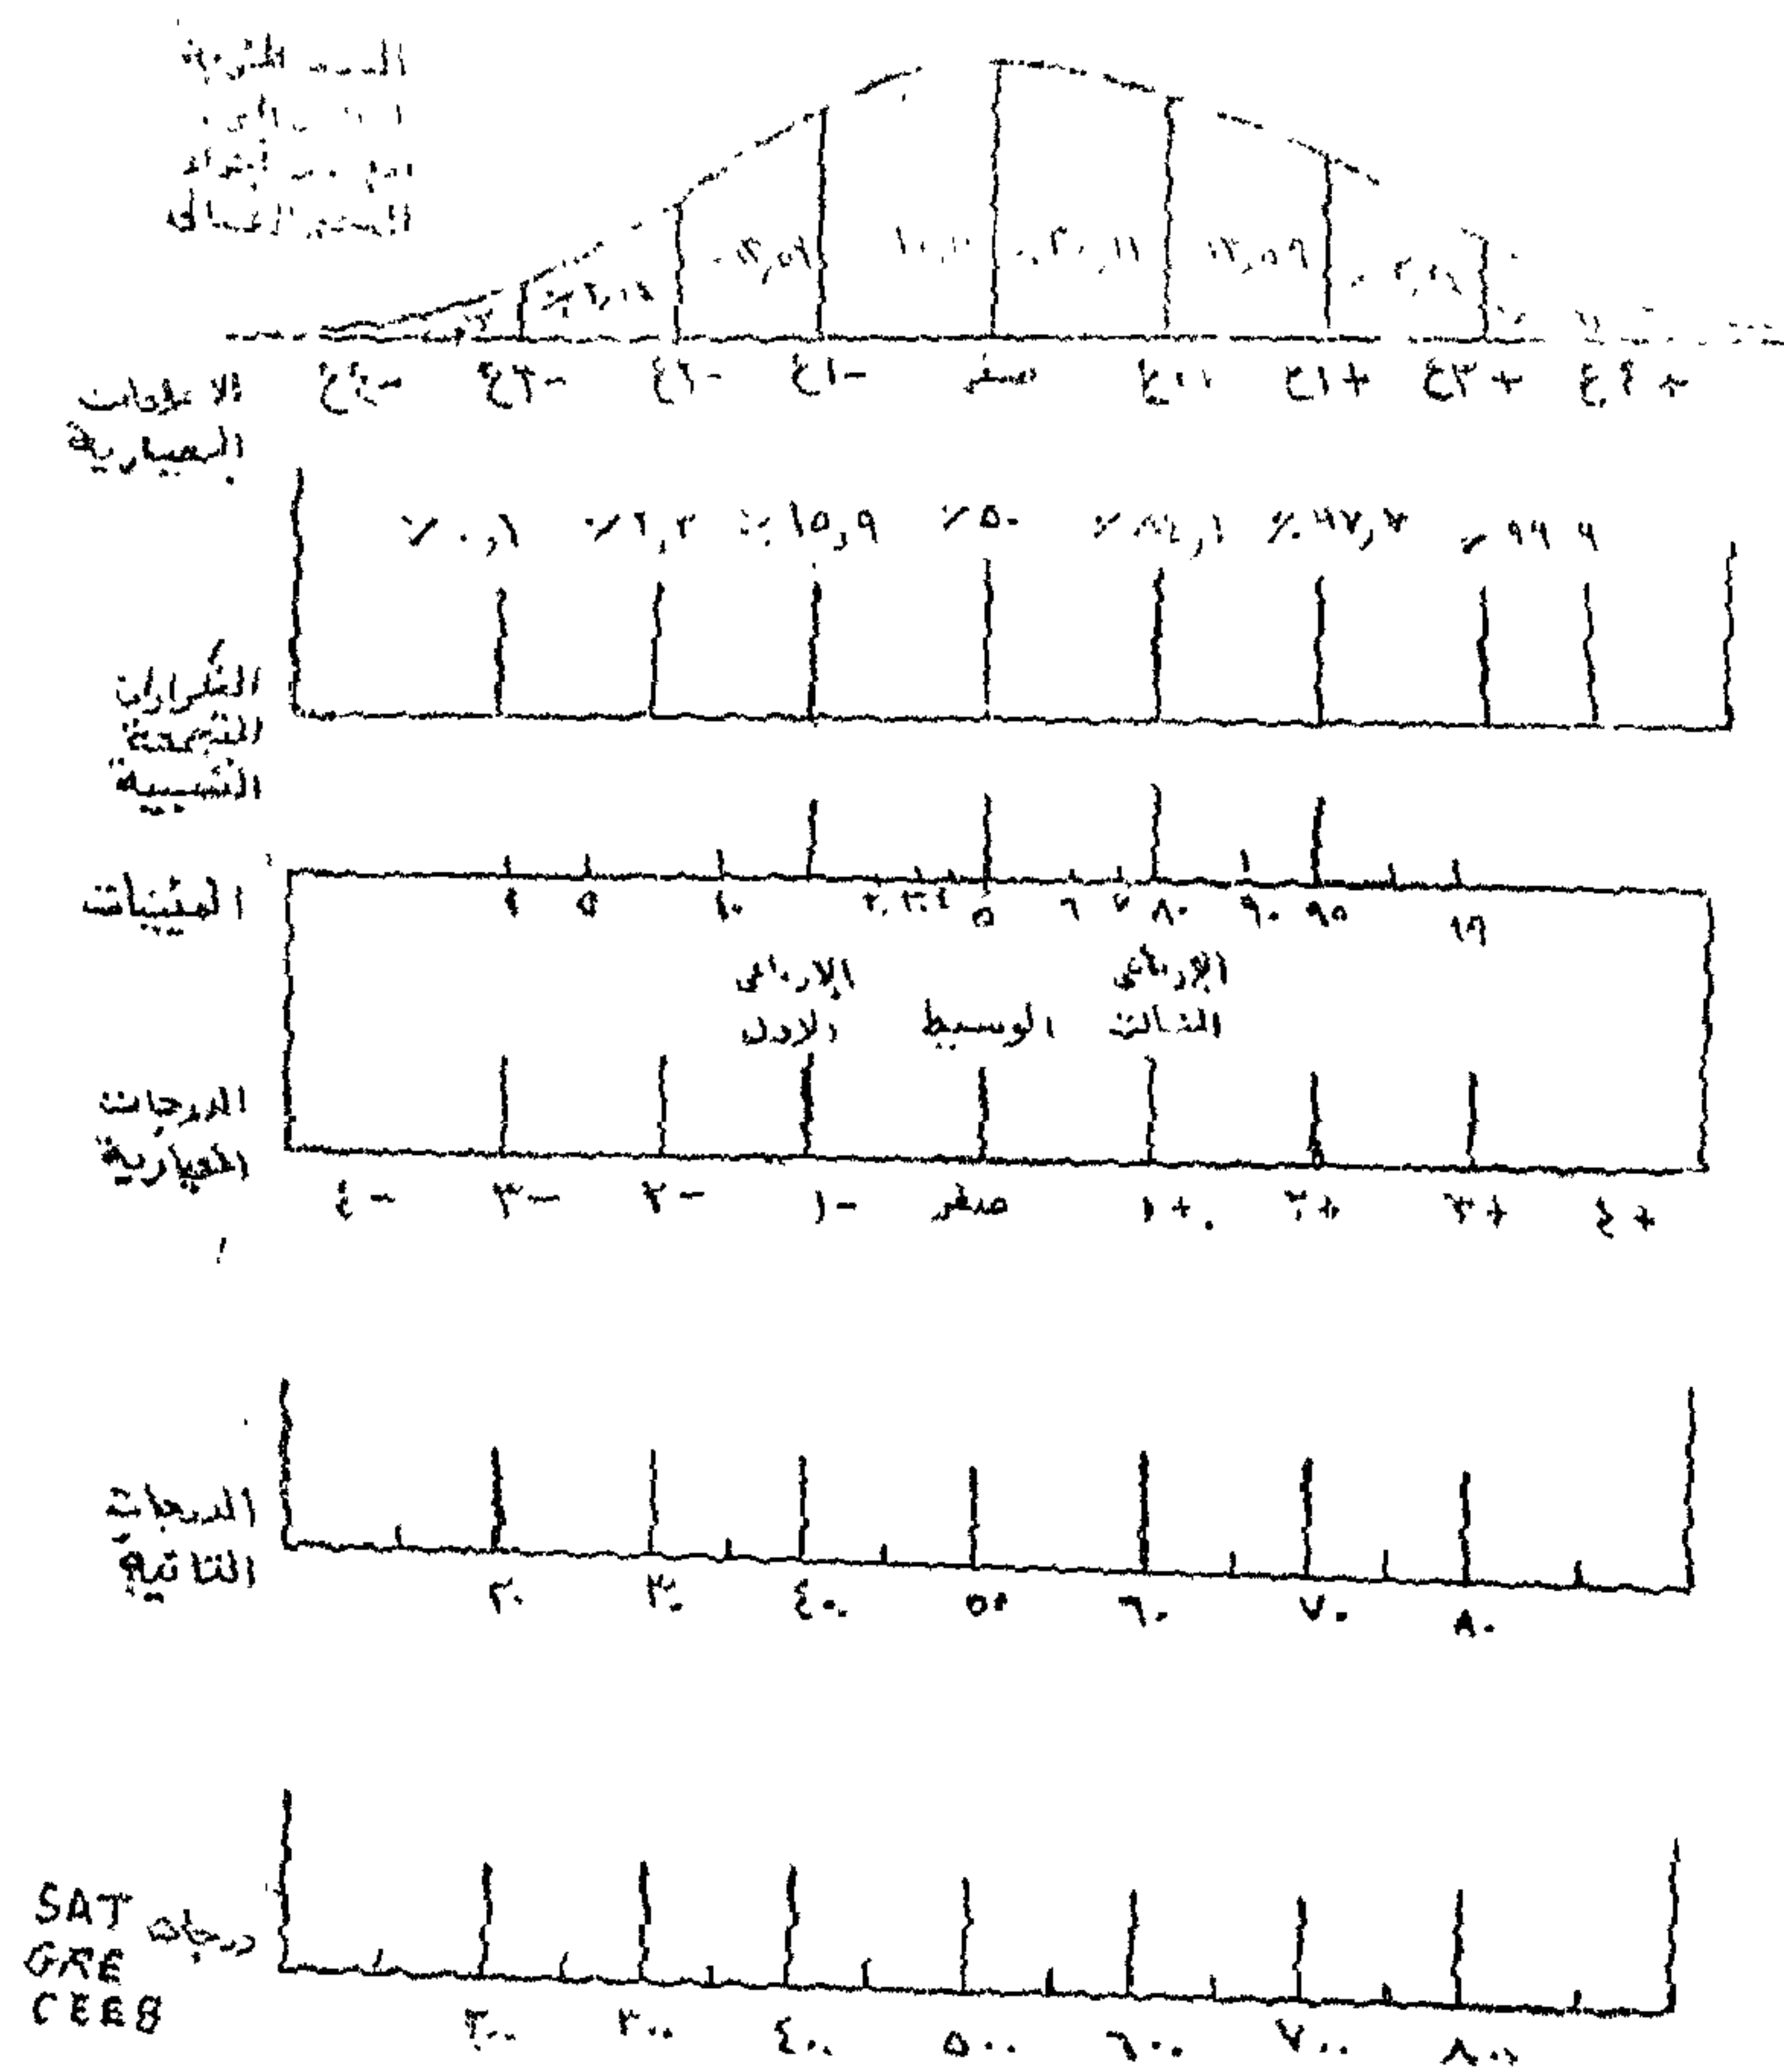 المئوية
الاعتدالى
٪١٣,٥٩
الانحرافات
المعيارية
-٤ع -٣ع -٢ع -١ع صفر +٣ع +٤ع
٪٠,١ ٪٢,٣ ٪١٥,٩ ٪٥٠ ٪٨٤,١ ٪٩٧,٧ ٪٩٩ ٩
التكرارات
المتجمعة
النسبية
المئينات
١ ٥ ١٠ ٢٠ ٣٠ ٤ ٥ ٦ ٧ ٨٠ ٩٠ ٩٥ ٩٩
الإرباعى
الأول
الوسيط
الإرباعى
الثالث
الدرجات
المعيارية
-٤ -٣ -٢ -١ صفر +١ +٢ +٣ +٤
الدرجات
التائية
٢٠ ٣٠ ٤٠ ٥٠ ٦٠ ٧٠ ٨٠
درجات SAT
GRE
CEEB
٢٠٠ ٣٠٠ ٤٠٠ ٥٠٠ ٦٠٠ ٧٠٠ ٨٠٠